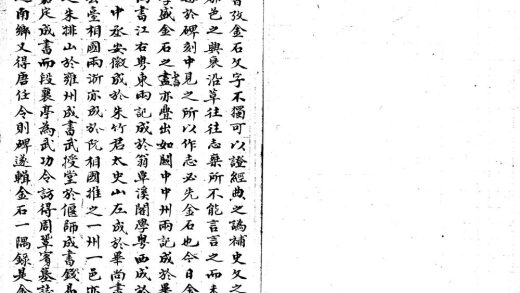 攷金石文字不獨可以證經典之譌補史文之
郡邑之興衰沿革往往志乘所不能言言之而未
每於碑刻中見之所以作志必先金石也今日金
學盛金石之書亦疊出如關中中州兩記成於畢
尚書江右粵東兩記成於翁覃溪閣學粵西成於
中丞安徽成於朱竹君太史山左成於畢尚書
芸臺相國兩浙亦成於阮相國推之一州一邑亦
之朱排山於雍州成書武授堂於偃師成書錢
嘉定成書而段襄亭為武功令訪得周鞏賓墓誌
之南鄉又得唐任令則碑遂輯金石一隅錄是金